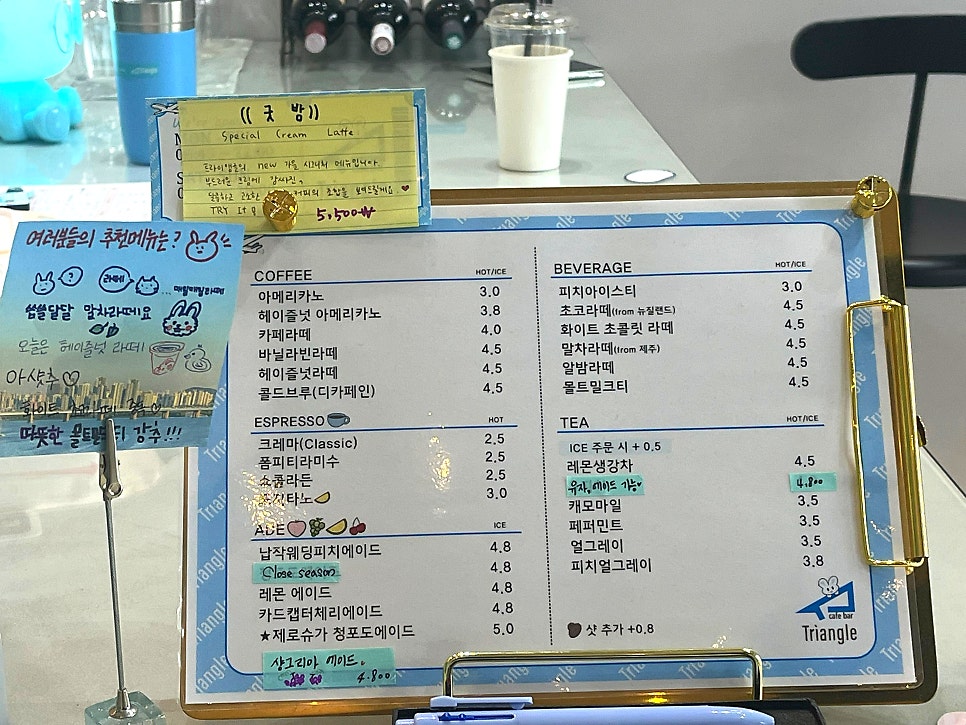 ((굿 밤))
Special Cream Latte
트라이앵글의 new 가을 시그니처 메뉴입니다
부드러운 크림에 감싸진,
달콤하고 고소한 커피의 조합을 보여드릴게요 ♥
TRY It
5,500₩
여러분들의 추천메뉴는?
?
라떼
쌉쌀달달 말차라떼요
오늘은 헤이즐넛 라떼
아샷추♡
따뜻한 몰트밀크티 강추!!!
COFFEE HOT/ICE
아메리카노 3.0
헤이즐넛 아메리카노 3.8
카페라떼 4.0
바닐라빈라떼 4.5
헤이즐넛라떼 4.5
콜드브루(디카페인) 4.5
ESPRESSO HOT
크레마(Classic) 2.5
폼피티라미수 2.5
쇼콜라든 2.5
3.0
ADE ICE
납작웨딩피치에이드 4.8
Close season 4.8
레몬 에이드 4.8
카드캡터체리에이드 4.8
★제로슈가 청포도에이드 5.0
샹그리아 에이드
4.800
BEVERAGE HOT/ICE
피치아이스티 3.0
초코라떼(from 뉴질랜드) 4.5
화이트 초콜릿 라떼 4.5
말차라떼(from 제주) 4.5
알밤라떼 4.5
몰트밀크티 4.5
TEA HOT/ICE
ICE 주문 시 + 0.5
레몬생강차 4.5
유자, 에이드 가능 4.800
캐모마일 3.5
페퍼민트 3.5
얼그레이 3.5
피치얼그레이 3.8
샷 추가 +0.8
cafe bar
Triangle